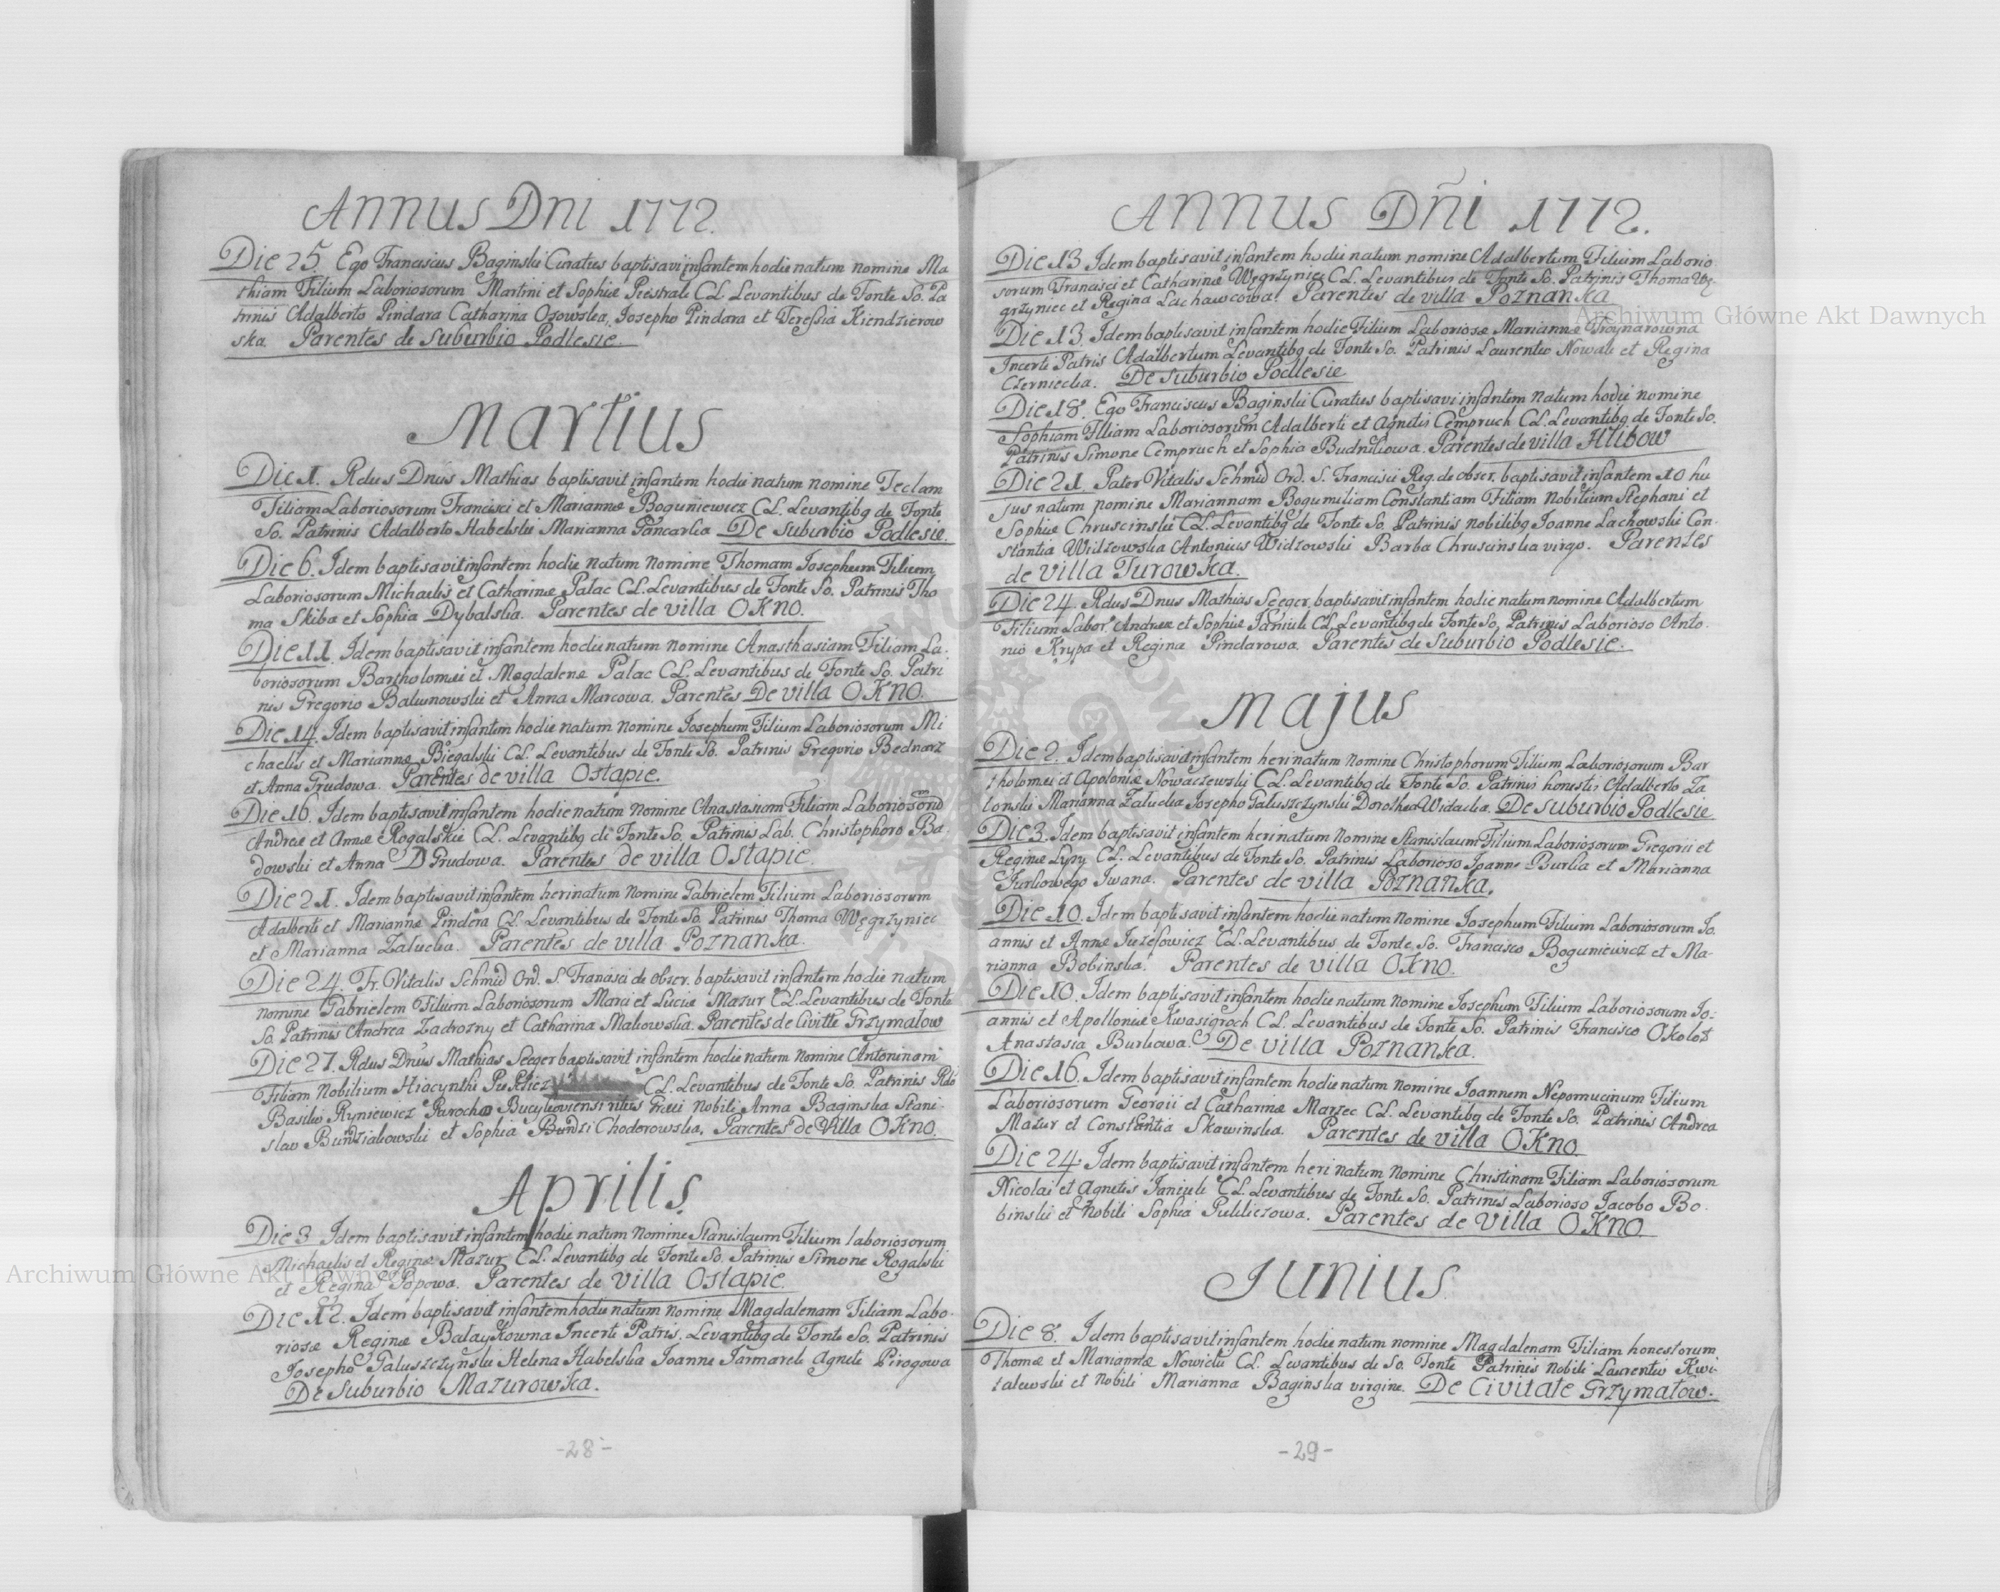 Annus Dni 1772.
Die 25 Ego Franciscus Baginski Curatus baptisavi infantem hodie natum nomine Ma
thiam Filium Laboriosorum Martini et Sophiæ Piestrak CL Levantibus de Fonte So. Pa
trinis Adalberto Pindara Catharina Osowska, Josepho Pindara et Teressia Kiendzierow
ska. Parentes de Suburbio Podlesie.
Martius
Die 1. Rdus Dnus Mathias baptisavit infantem hodie natum nomine Teclam
Filiam Laboriosorum Francisci et Mariannæ Boguniewicz CL. Levantibq de Fonte
So. Patrinis Adalberto Habelski Marianna Pancarka De Suburbio Podlesie.
Die 6. Idem baptisavit infantem hodie natum nomine Thomam Josephum Filium
Laboriosorum Michaelis et Catharinæ Palac CL. Levantibus de Fonte So. Patrinis Tho
ma Skiba et Sophia Dybalska. Parentes de villa OKno.
Die 11. Idem baptisavit infantem hodie natum nomine Anasthasiam Filiam La-
boriosorum Bartholomei et Magdalenæ Palac CL. Levantibus de Fonte So. Patri
nis Gregorio Balunowski et Anna Marcowa. Parentes De villa OKno.
Die 14. Idem baptisavit infantem hodie natum nomine Josephum Filium Laboriosorum Mi
chaelis et Mariannæ Biegalski CL. Levantibus de Fonte So. Patrinis Gregorio Bednarz
et Anna Grudowa. Parentes de villa Ostapie.
Die 16. Idem baptisavit infantem hodie natum nomine Anastasiam Filiam Laboriosorum
Andreæ et Annæ Rogalskie CL. Levantibq de Fonte So. Patrinis Lab. Christophoro Ba.
dowski et Anna D Grudowa. Parentes de villa Ostapie.
Die 21. Idem baptisavit infantem heri natum nomine Gabrielem Filium Laboriosorum
Adalberti et Mariannæ Pindera CL. Levantibus de Fonte So. Patrinis Thoma Węgrzyniec
et Marianna Załucka. Parentes de villa Poznanka.
Die 24. Fr. Vitalis Schmid Ord. S. Francisci de obser. baptisavit infantem hodie natum
nomine Gabrielem Filium Laboriosorum Marci et Luciæ Mazur CL. Levantibus de Fonte
So. Patrinis Andrea Zadrozny et Catharina Makowska. Parentes de Civitte Grzymałow
Die 27. Rdus Dnus Mathias Seeger baptisavit infantem hodie natum nomine Antoninam
Filiam Nobilium Hiacynthi CL. Levantibus de Fonte So. Patrinis Rdo
Basilio Ryniewicz Parocho ritus Græci Nobili Anna Baginska Stani-
slao Bundziakowski et Sophia Choderowska, Parentes de Villa OKno.
Aprilis.
Die 3 Idem baptisavit infantem hodie natum nomine Stanislaum Filium laboriosorum
Michaelis et Reginæ Mazur CL. Levantibq de Fonte So. Patrinis Simone Rogalski
et Regina Popowa. Parentes de villa Ostapie
Die 12. Idem baptisavit infantem hodie natum nomine Magdalenam Filiam Labo-
riosæ Reginæ Bałaykowna Incerti Patris. Levantibq de Fonte So. Patrinis
Josepho Galuszczynski Helena Habelska Joanne Jarmarek Agnete Pirogowa
De Suburbio Mazurowka.
-28-
Annus Dñi 1772.
Die 13 Idem baptisavit infantem hodie natum nomine Adalbertum Filium Laborio
sorum Francisci et Catharinæ Węgrzyniec CL. Levantibus de Fonte So. Patrinis Thoma Wę-
grzyniec et Regina Lachawcowa. Parentes de villa Poznanka
Die 13. Idem baptisavit infantem hodie Filium Laboriosæ Mariannæ Troynarowna
Incerti Patris Adalbertum Levantibq de Fonte So. Patrinis Laurentio Nowak et Regina
Czerniecka. De Suburbio Podlesie
Die 18. Ego Franciscus Baginski Curatus baptisavi infantem natum hodie nomine
Sophiam Filiam Laboriosorum Adalberti et Agnetis Cempruch CL. Levantibq de Fonte So.
Patrinis Simone Cempruch et Sophia Budnikowa. Parentes de villa Hlibow
Die 21. Pater Vitalis Schmid Ord. S. Francisci Reg. de obser. baptisavit infantem 10 hu
jus natum nomine Mariannam Bogumiliam Constantiam Filiam Nobilium Stephani et
Sophiæ Chruscinski CL. Levantibq de Fonte So. Patrinis nobilibq Joanne Lachowski Con-
stantia Widzowska Antonius Widzowski Barba Chruscinska virgo. Parentes
de villa Turowka.
Die 24. Rdus Dnus Mathias Seeger baptisavit infantem hodie natum nomine Adalbertum
Filium Labor. Andreæ et Sophiæ Janiuk CL. Levantibq de Fonte So. Patrinis Laborioso Anto-
nio Krypa et Regina Pindarowa. Parentes de Suburbio Podlesie.
Majus
Die 2. Idem baptisavit infantem heri natum nomine Christophorum Filium Laboriosorum Bar
tholomei et Apoloniæ Nowaczewski CL. Levantibq de Fonte So. Patrinis honestis Adalberto Za
Marianna Załucka Josepho Galuszczynski Dorothea Widacka. De Suburbio Podlesie
Die 3. Idem baptisavit infantem heri natum nomine Stanislaum Filium Laboriosorum Gregorii et
Reginæ Łysy CL. Levantibus de Fonte So. Patrinis Laborioso Joanne Burka et Marianna
Iwana. Parentes de villa Poznanka.
Die 10. Idem baptisavit infantem hodie natum nomine Josephum Filium Laboriosorum Jo.
annis et Annæ Juzefowicz CL. Levantibus de Fonte So. Francisco Boguniewicz et Ma-
rianna Bobinska. Parentes de villa OKno.
Die 10. Idem baptisavit infantem hodie natum nomine Josephum Filium Laboriosorum Jo-
annis et Apolloniæ Kwasigroch CL. Levantibus de Fonte So. Patrinis Francisco Okołot
Anastasia Burkowa. De villa Poznanka.
Die 16. Idem baptisavit infantem hodie natum nomine Joannem Nepomucinum Filium
Laboriosorum Georgii et Catharinæ Marzec CL. Levantibq de Fonte So. Patrinis Andrea
Mazur et Constantia Skawinska. Parentes de villa OKno
Die 24. Idem baptisavit infantem heri natum nomine Christinam Filiam Laboriosorum
Nicolai et Agnetis Janiuk CL. Levantibus de Fonte So. Patrinis Laborioso Jacobo Bo-
binski et Nobili Sophia Pulikczowa. Parentes de villa OKno.
Junius.
Die 8. Idem baptisavit infantem hodie natum nomine Magdalenam Filiam honestorum
Thomæ et Mariannæ Nowicki CL. Levantibus de So. Fonte Patrinis nobili Laurentio Kwi-
talewski et nobili Marianna Baginska virgine. De Civitate Grzymałow.
-29-
Archiwum Główne Akt Dawnych
Archiwum Główne Akt Dawnych